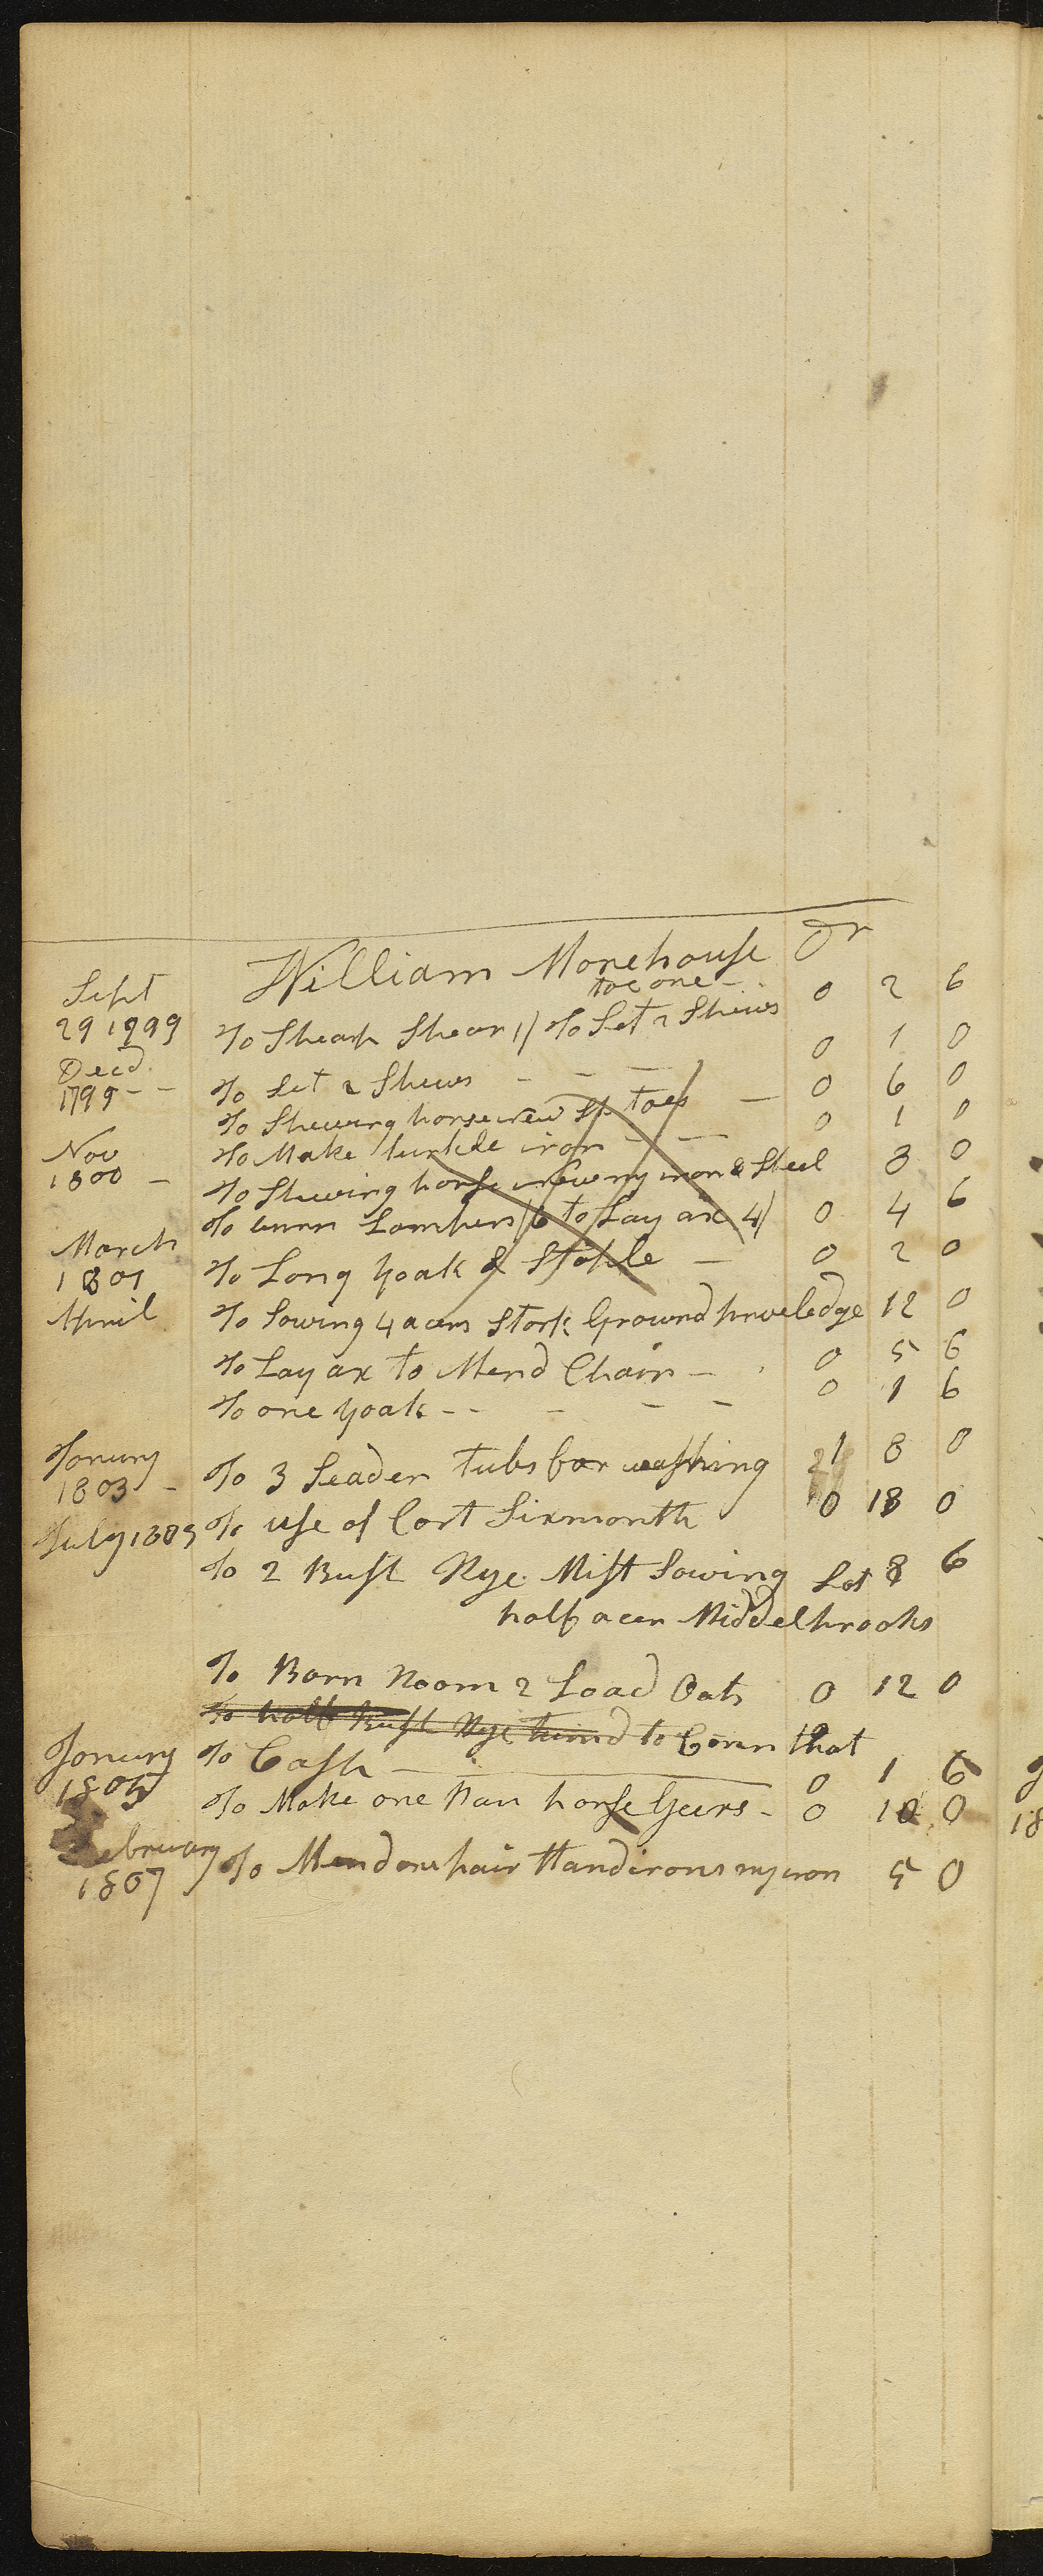 William Morehouse Dr
Sept toe one
29 1799 To Sharp Shear 1/ To Set 2 Shews 0 2 6
Decd 1799 - - To Set 2 Shews - - - 0 1 0
To Shewing horse new St toes - 0 6 0
Nov To Make iron - - 0 1 0
1800 - To Shewing horse my iron & Steel 8 0
To Lampers /6 to Lay ax 4/ 0 4 6
March
1801 To Long yoak & Staple - 0 2 0
April To Sowing 4 acers Stork Ground priveledge 12 0
To Lay ax to Mend Chain - 0 5 6
To one yoak - - - - - 0 1 6
Jonury
1803 - To 3 Seader tubs for washing 1 8 0
July 1805 To use of Cart Sixmonth 0 18 0
To 2 Bush Rye Sowing Lot 8 6
half acer Middelbrooks
To Barn Room 2 Load Oats 0 12 0
To half Bush Rye to Corn that
Jonury To Cash 0 1 6
1805 To Make one Pair horse Geers - 0 10 0
February
1807 To Mend one pair Handirons my iron 5 0
18